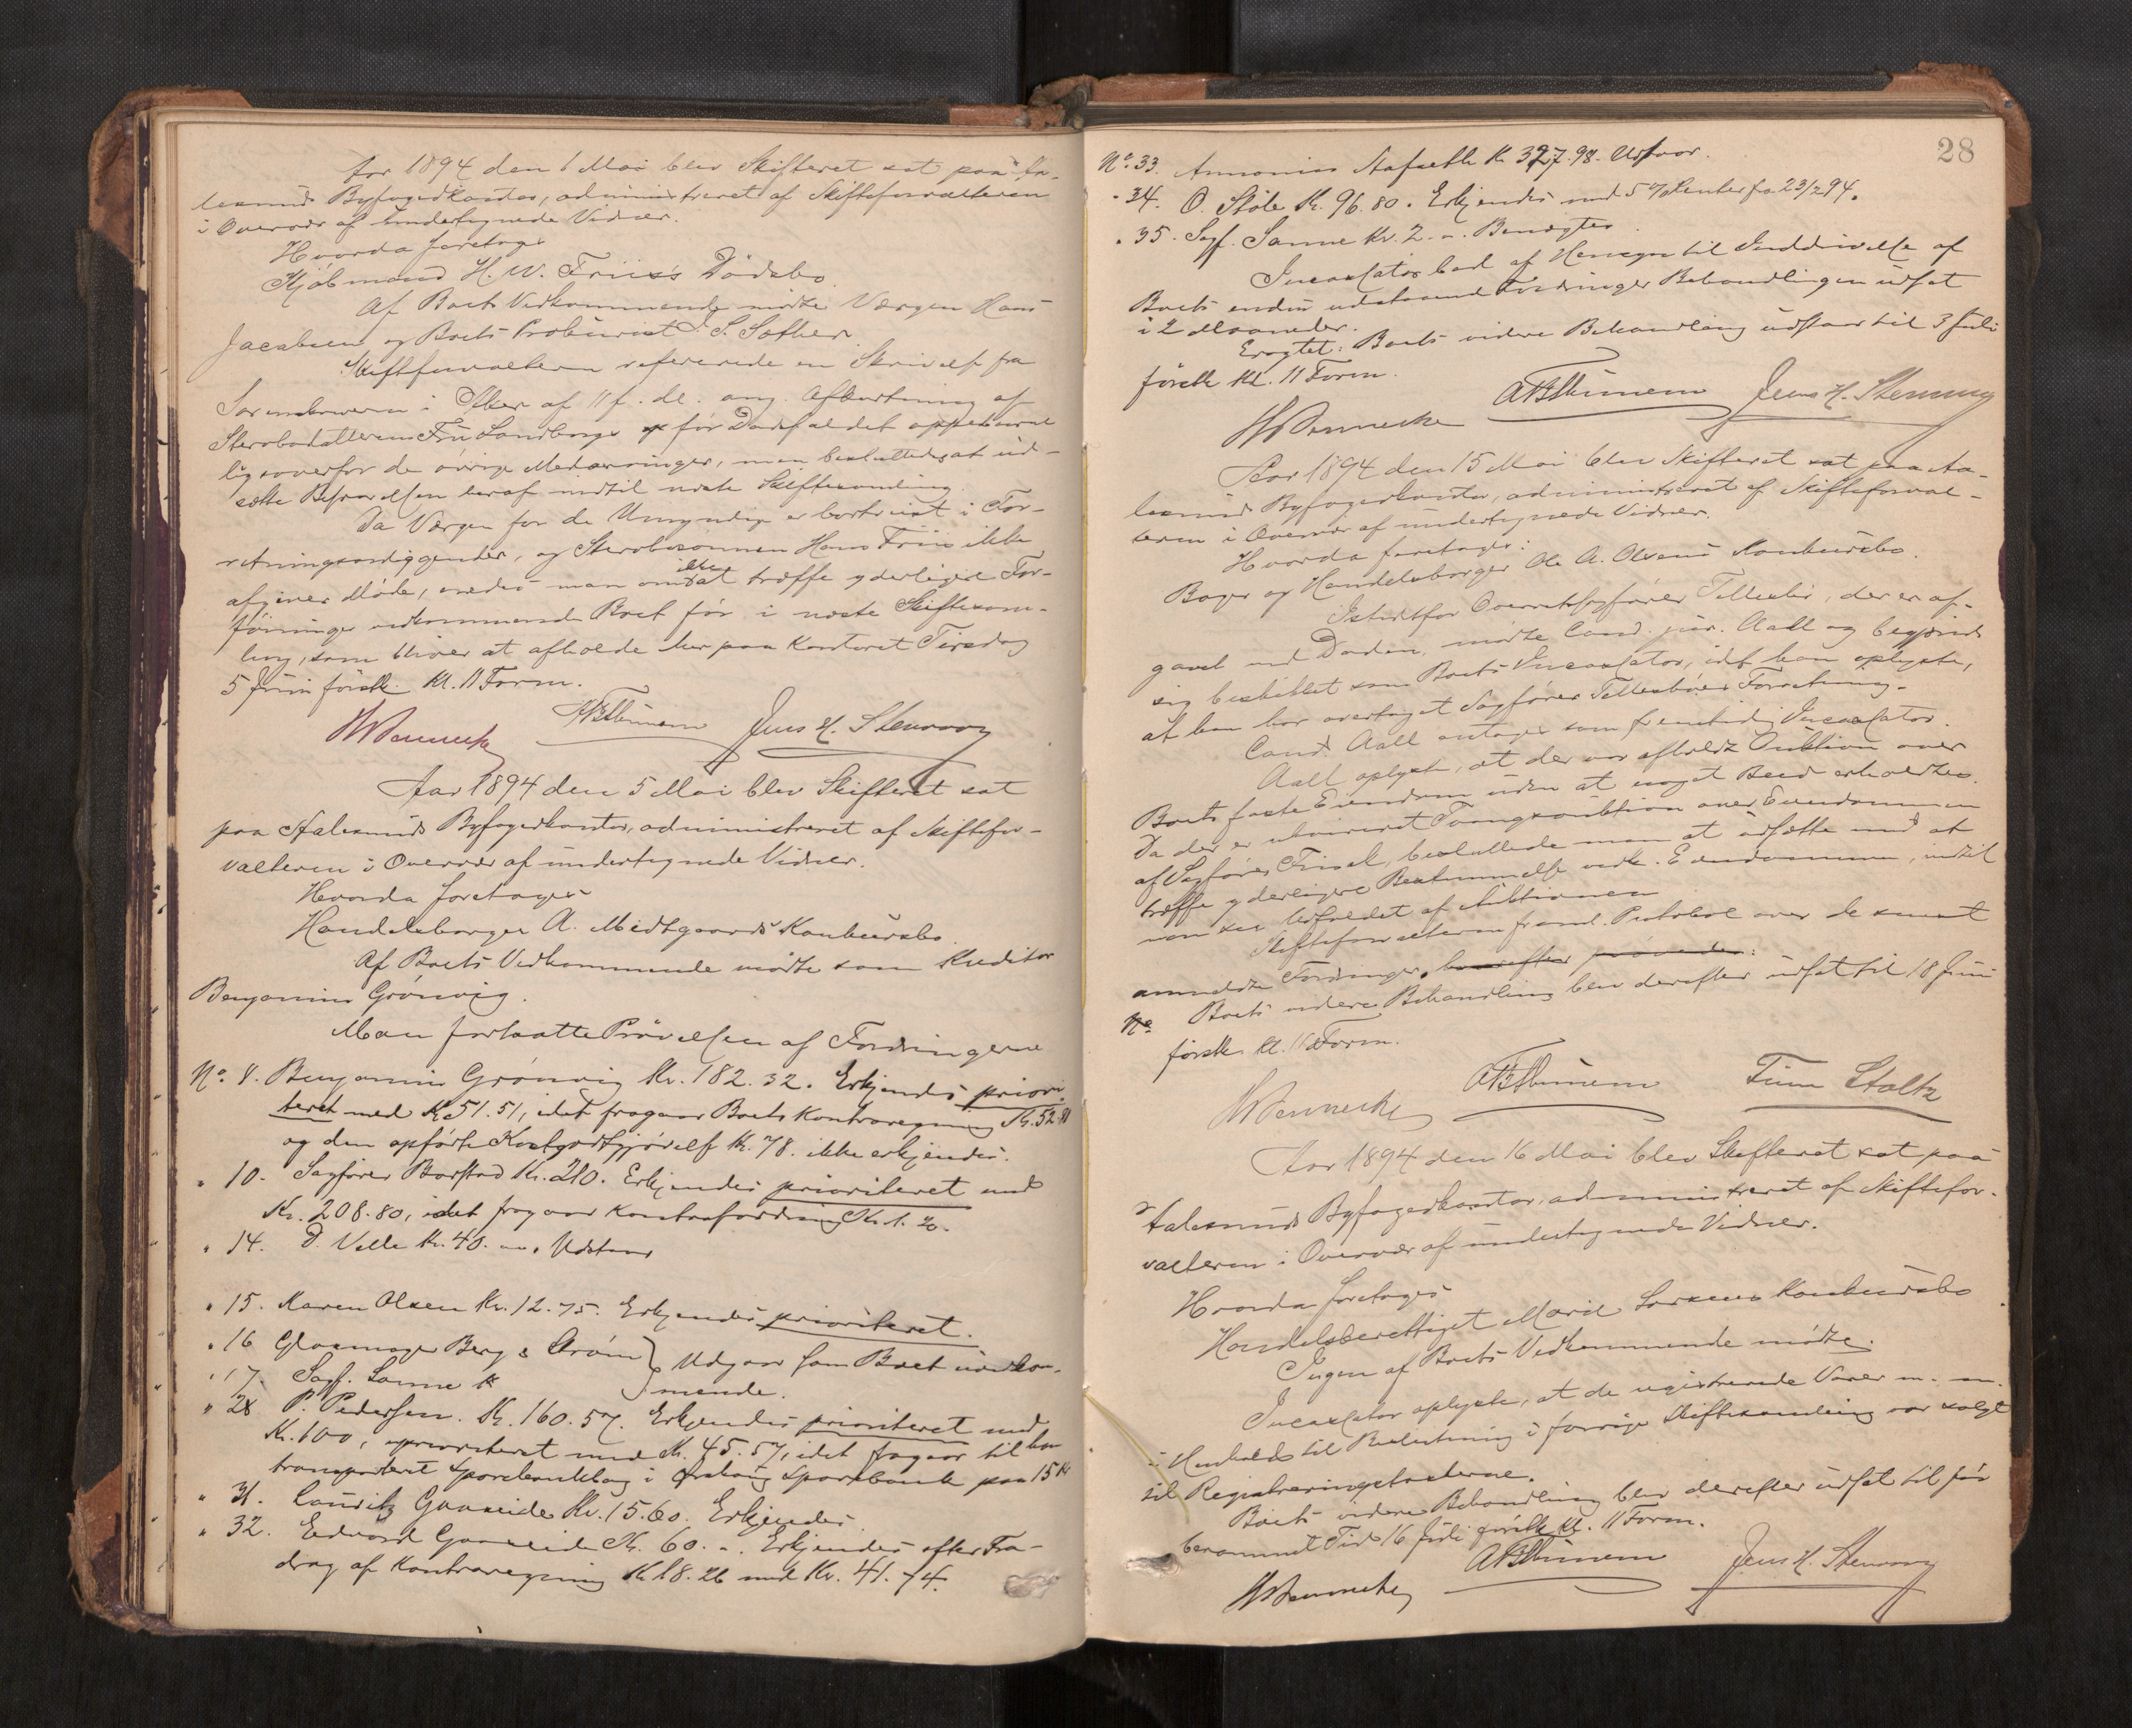 Aar 1894 den 1 Mai blev Skifteret sat paa Aa-
lesunds Byfogedkontor, administreret af Skifteforvalteren
i Overvær af undertegnede Vidner.
Hvorda foretoges
Kjøbmand H. W. Friis's Dødsbo.
Af Boets Vedkommende mødte Værgen Hans
Jacobsen og Boets Prokurist J. S. Sæther.
Skifteforvalteren refererede en Skrivelse fra
Sorenskriveren i Aker af 11 f. M. ang. Afkortning af
Sterbodatteren Fru Landborgs før Dødsfaldet oppebaarne
ligeoverfor de øvrige Medarvinger, man besluttede at ud-
sætte Besvarelsen heraf indtil næste Skiftesamling.
Da Værgen for de Umyndige er bortreist i For-
retningsanliggender, og Sterbosønnen Hans Friis ikke
afgiver Møde, enedes man om ikke at træffe yderligere For-
føininger vedkommende Boet før i næste Skiftesam-
ling, som bliver at afholde her paa Kontoret Tirsdag
5 Juni førstk. Kl. 11 Form.
Aar 1894 den 5 Mai blev Skifteret sat
paa Aalesunds Byfogedkontor, administreret af Skiftefor-
valteren i Overvær af undertegnede Vidner.
Hvorda foretoges
Handelsborger A. Midtgaards Konkursbo.
Af Boets Vedkommende mødte som Kreditor
Benjamin Grønvig.
Man fortsatte Prøvelsen af Fordringerne
No. 8. Benjamin Grønvig Kr. 182.32. Erkjendes priori-
teret med Kr. 51.51, idet fragaar Boets Kontraregning Kr. 52.81
og den opførte Kostgodtgjørelse Kr. 78. ikke erkjendes.
" 10. Sagfører Barstad Kr. 210. Erkjendes prioriteret med
Kr. 208.80, idet fragaar Kontrafordring Kr. 1.20.
" 14. D. Velle Kr. 40. –. Udstaar
" 15. Karen Olsen Kr. 12.75. Erkjendes prioriteret.
" 16 Glasmager Berg & Strøm } Udgaar som Boet uvedkom-
" 17. Sagf. Sanne Kr } mende.
" 28 P. Pedersen. Kr. 160.57. Erkjendes prioriteret med
Kr. 100, uprioriteret med Kr. 45.57, idet fragaar til ham
transporteret Sparebankbog i Ørskog Sparebank paa 15 Kr
" 31. Lauritz Gaaseide Kr. 15.60. Erkjendes.
" 32. Edvard Gaaseide Kr. 60. –. Erkjendes efter Fra-
drag af Kontraregning Kr. 18.26 med Kr. 41.74.
28
No. 33. Annanias Hafsæth Kr. 327.98. Udstaar.
" 34. O. Støle Kr. 96.80. Erkjendes med 5 % Renter fra 23/2 94.
" 35. Sagf. Sanne Kr. 2. –. Benægtes.
Incassator bad af Hensyn til Inddrivelse af
Boets endnu udestaaende Fordringer Behandlingen udsat
i 2 Maaneder.
Eragtet: Boets videre Behandling udstaar til 3 Juli
førstk. Kl. 11 Form.
Aar 1894 den 15 Mai blev Skifteret sat paa Aa-
lesunds Byfogedkontor, administreret af Skifteforval-
teren i Overvær af undertegnede Vidner.
Hvorda foretoges:
Bager og Handelsborger Ole A. Olsens Konkursbo.
Istedetfor Overretssagfører Tellesbø, der er af-
gaaet ved Døden, mødte Cand. jur. Aall og begjærede
sig beskikket som Boets Incassator, idet han oplyste,
at han har overtaget Sagfører Tellesbøes Forretning.
Cand. Aall antages som fremtidig Incassator.
Aall oplyste, at der var afholdt Auktion over
Boets faste Eiendom uden at noget Bud erholdtes.
Da der er rekvireret Tvangsauktion over Eiendommen
af Sagfører Friisak, besluttede man at udsætte med at
træffe yderligere Bestemmelse vedk. Eiendommen, indtil
man ser Udfaldet af Auktionen
Skifteforvalteren freml. Protokol over de senest
anmeldte Fordringer, hvorefter prøvedes:
No Boets videre Behandling blev derefter udsat til 18 Juni
førstk. Kl. 11 Form.
Finn Stoltz
Aar 1894 den 16 Mai blev Skifteret sat paa
Aalesunds Byfogedkontor, administreret af Skiftefor-
valteren i Overvær af undertegnede Vidner.
Hvorda foretoges
Handelsberettiget Marie Larsens Konkursbo
Ingen af Boets Vedkommende mødte.
Incassator oplyste, at de registrerede Varer m. m.
i Henhold til Beslutning i forrige Skiftesamling var solgt
til Registreringstaksterne.
Boets videre Behandling blev derefter udsat til før
berammet Tid 16 Juli førstk. Kl. 11 Form.